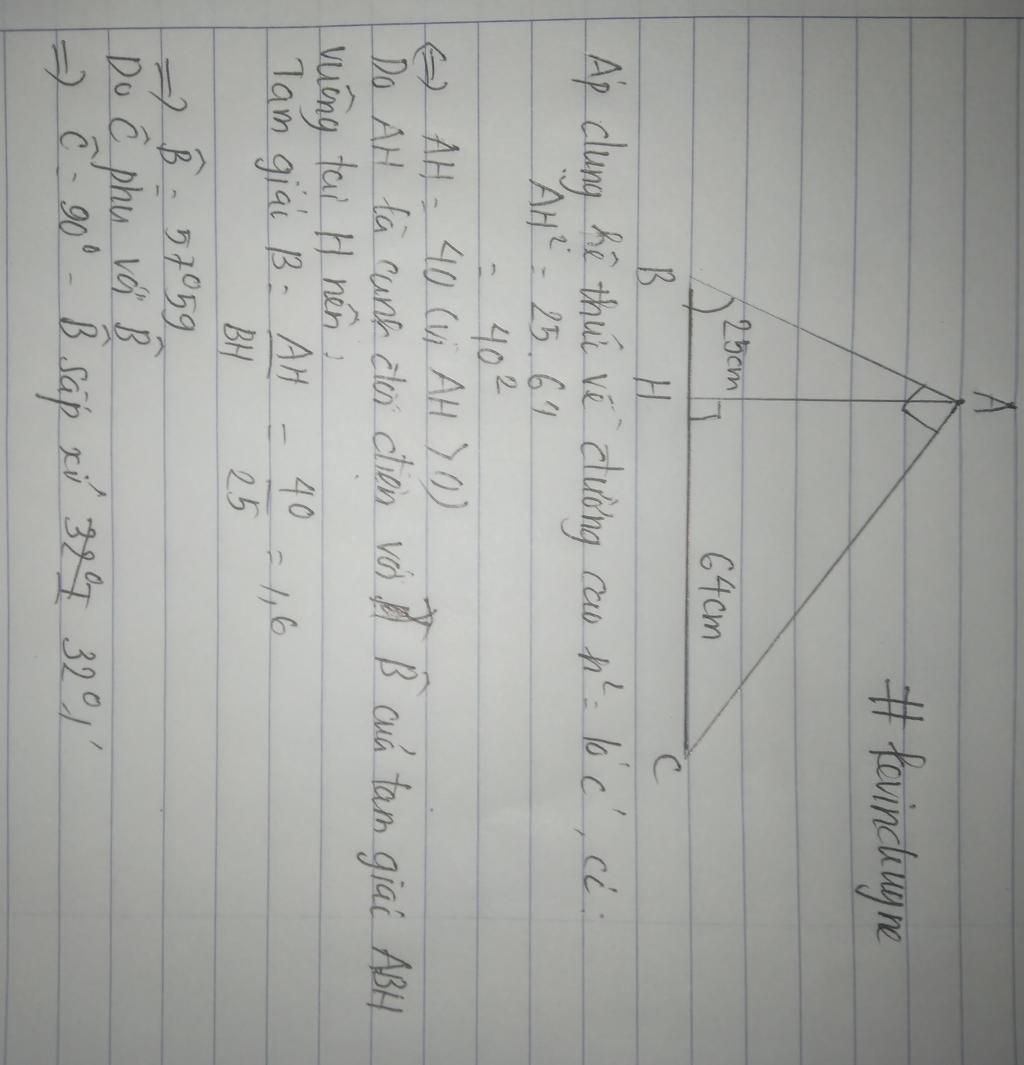 # kevinduyne
A
25cm
64cm
B
H
C
Áp dụng hệ thức về đường cao h² = b'c', có:
AH² = 25.64
= 40²
⇔ AH = 40 (vì AH > 0)
Do AH là cạnh đối diện với B̂ của tam giác ABH
vuông tại H nên:
Tam giác B = AH/BH = 40/25 = 1,6
⇒ B̂ = 57°59
Do Ĉ phụ với B̂
⇒ Ĉ = 90° - B̂ sấp xỉ 32°1'